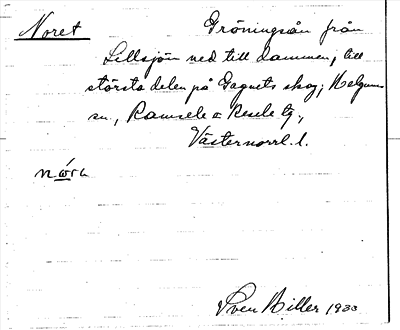 Noret Gröningsån från
Lillsjön ned till dammen, till
största delen på Gagnets skog; Helgums
sn., Ramsele o Resele tg.,
Västernorrl. l.
nóra
Sven Hiller 1933